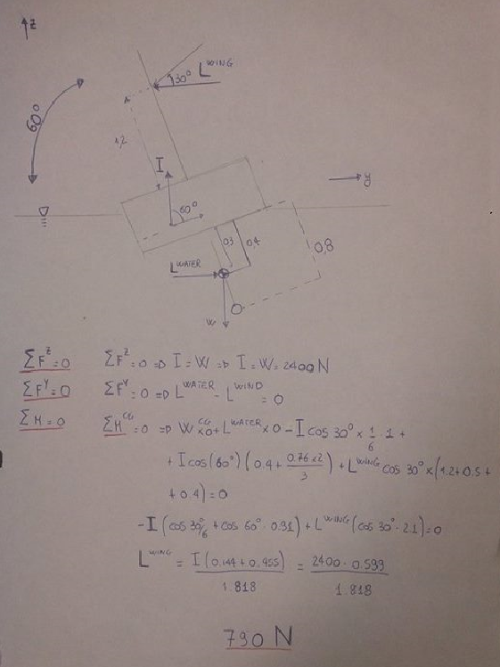 z
30° L^WING
60°
1,2
I
y
60°
0.3 0,4
0,8
L^WATER
W
ΣF^z=0 ΣF^z=0 => I=W => I=W=2400N
ΣF^y=0 ΣF^y=0 => L^WATER - L^WIND = 0
ΣM=0 ΣM^CG=0 => W^CG×0+L^WATER×0-I cos 30°× 1/6 · 1 +
+ I cos(60°)(0.4+ 0.76×2/3)+L^WING cos 30°×(1.2+0.5+
+0.4)=0
-I(cos 30°/6 + cos 60°·0.91)+L^WING(cos 30°·2.1)=0
L^WING = I(0.144+0.455)/1.818 = 2400·0.599/1.818
790 N